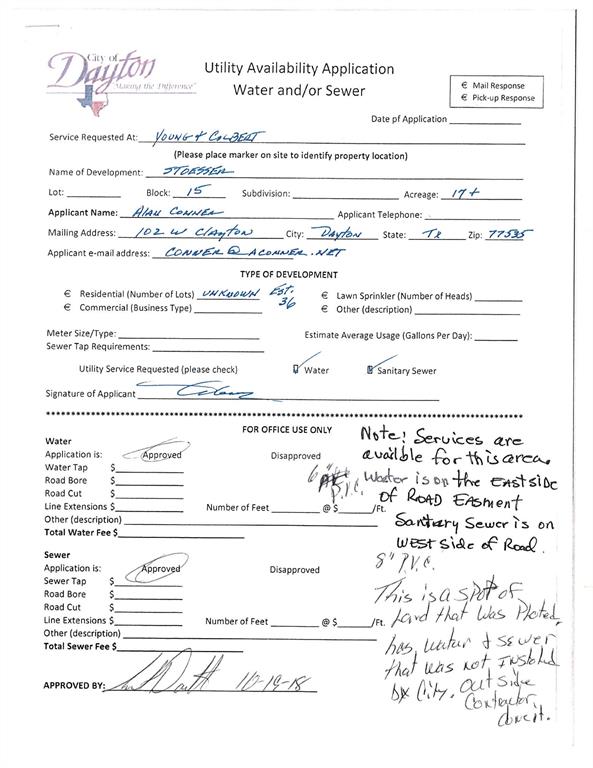 City of
Dayton
"Making the Difference"
Utility Availability Application
Water and/or Sewer
€ Mail Response
€ Pick-up Response
Date pf Application
Service Requested At: YOUNG & COLBERT
(Please place marker on site to identify property location)
Name of Development: STOESSER
Lot: Block: 15 Subdivision: Acreage: 17+
Applicant Name: ALAN CONNER Applicant Telephone:
Mailing Address: 102 W CLAYTON City: DAYTON State: TX Zip: 77535
Applicant e-mail address: CONNER@ACONNER.NET
TYPE OF DEVELOPMENT
€ Residential (Number of Lots) UNKNOWN EST. 36 € Lawn Sprinkler (Number of Heads)
€ Commercial (Business Type) € Other (description)
Meter Size/Type: Estimate Average Usage (Gallons Per Day):
Sewer Tap Requirements:
Utility Service Requested (please check) Water Sanitary Sewer
Signature of Applicant
FOR OFFICE USE ONLY
Water
Application is: Approved Disapproved
Water Tap $
Road Bore $
Road Cut $
Line Extensions $ Number of Feet @ $ /Ft.
Other (description)
Total Water Fee $
Note! Services are
available for this area.
6" P.V.C. Water is on the EAST SIDE
of ROAD EASMENT
Sanitary Sewer is on
WEST Side of Road.
8" P.V.C.
Sewer
Application is: Approved Disapproved
Sewer Tap $
Road Bore $
Road Cut $
Line Extensions $ Number of Feet @ $ /Ft.
Other (description)
Total Sewer Fee $
This is a spot of
Land that was Ploted,
has water & sewer
that was not Installed
by City. Outside
Contractor,
APPROVED BY: 10-19-18